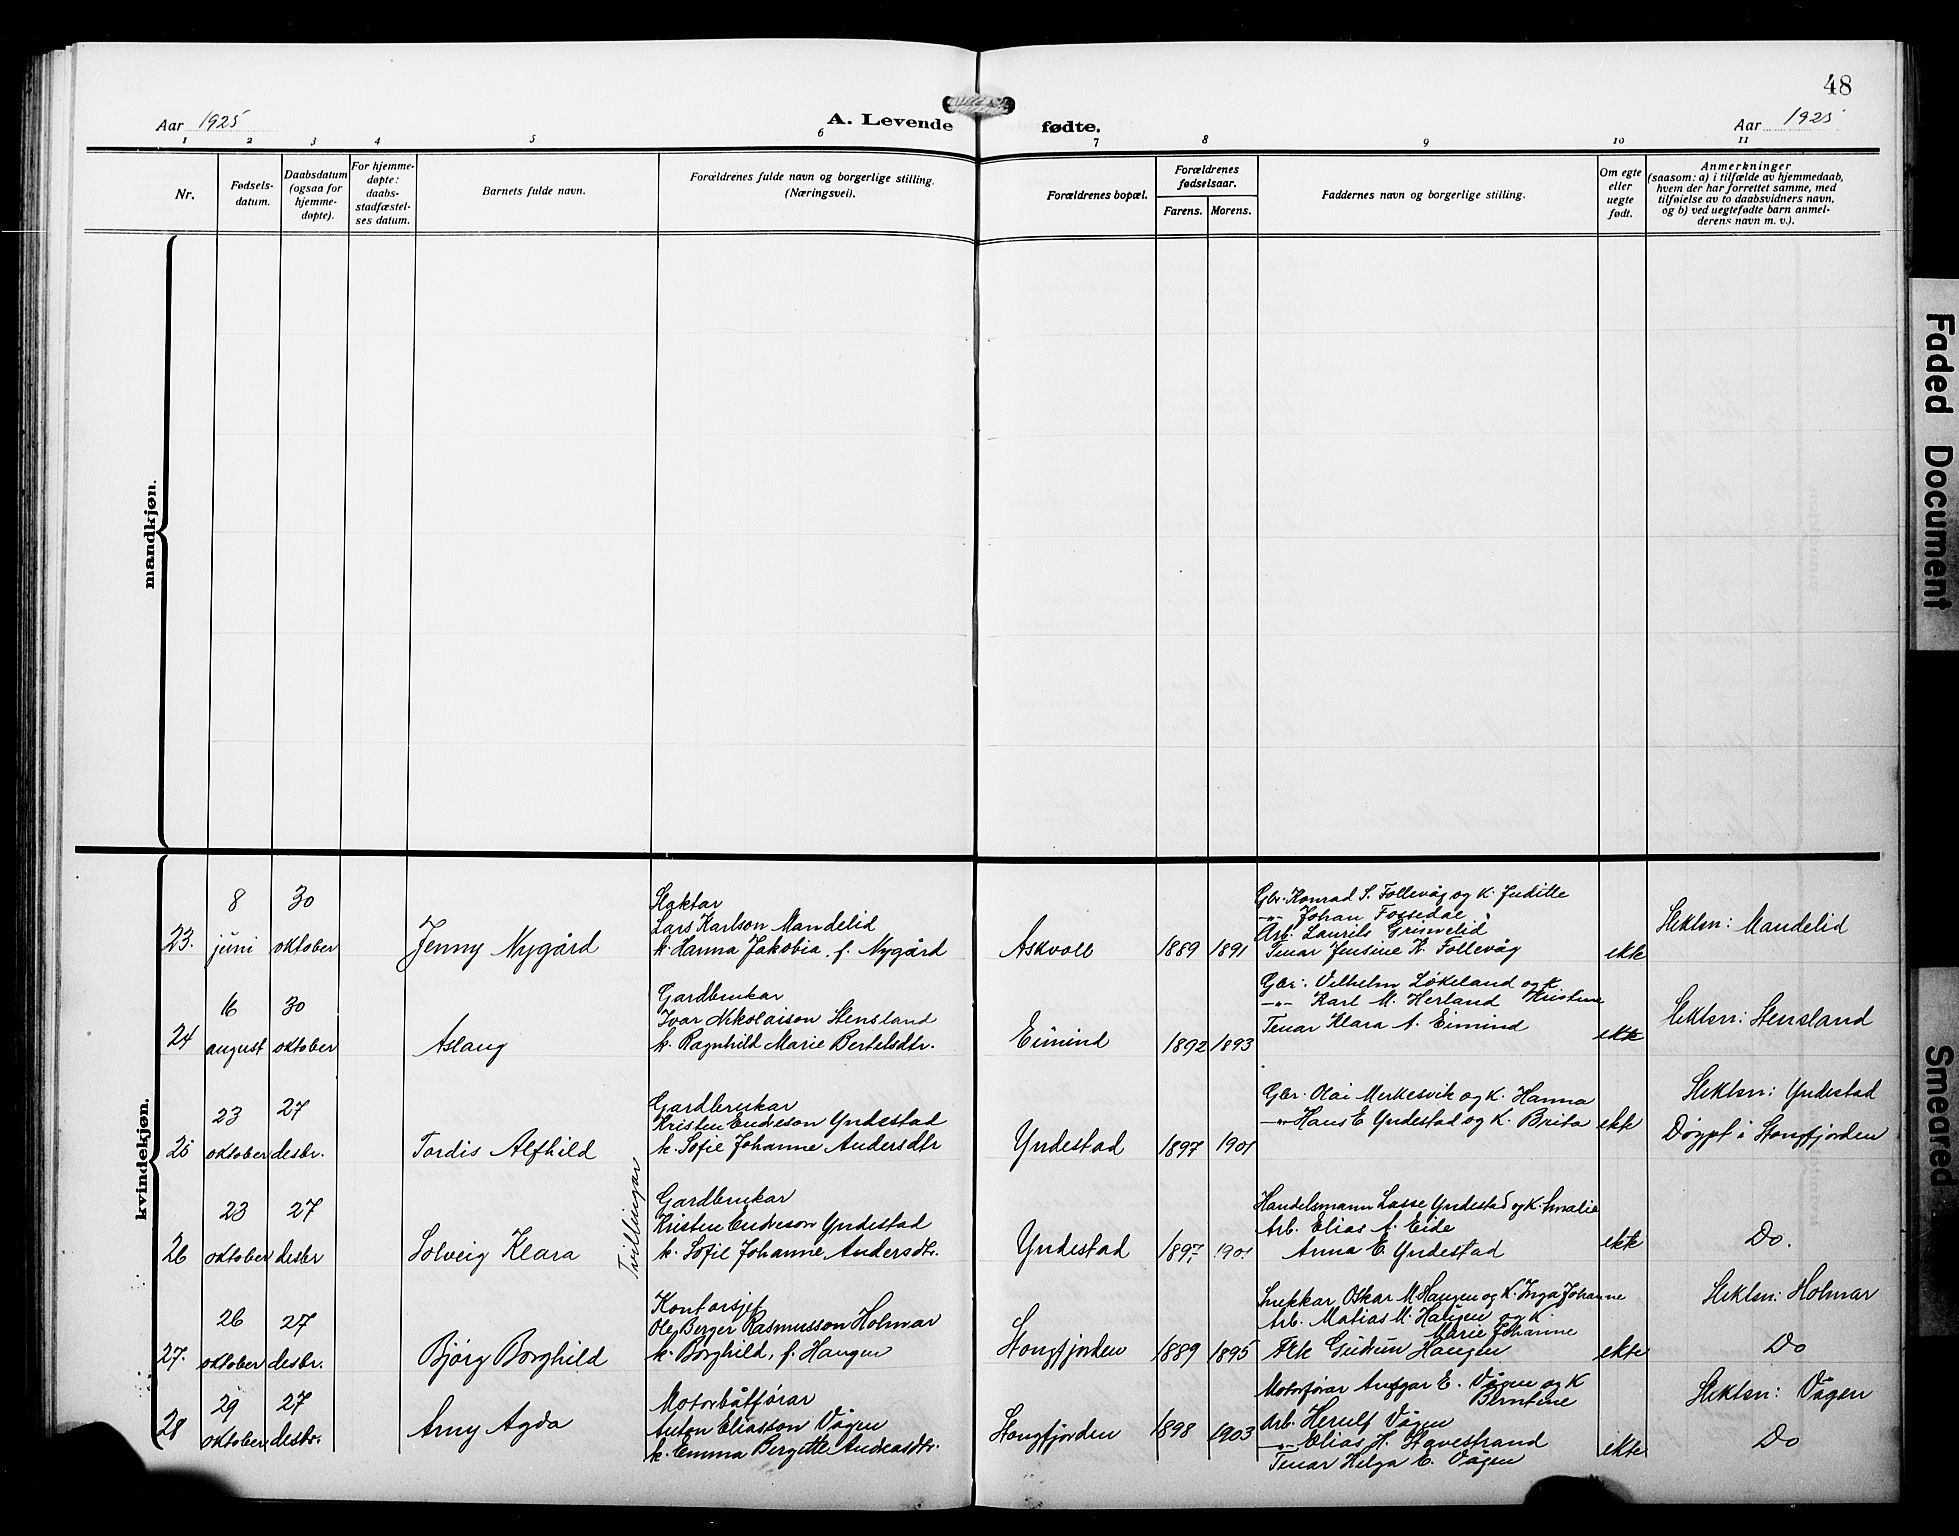 48
Aar 1925
A. Levende fødte.
Aar 1925
1 2 3 4 5 6 7 8 9 10 11
Nr.
Fødsels-
datum.
Daabsdatum
(ogsaa for
hjemme-
døpte).
For hjemme-
døpte:
daabs-
stadfæstel-
ses datum.
Barnets fulde navn.
Forældrenes fulde navn og borgerlige stilling.
(Næringsvei).
Forældrenes bopæl.
Forældrenes
fødselsaar.
Farens. Morens.
Faddernes navn og borgerlige stilling.
Om egte
eller
uegte
født.
Anmerkninger
(saasom: a) i tilfælde av hjemmedaab,
hvem der har forrettet samme, med
tilføielse av to daabsvidners navn,
og b) ved uegtefødte barn anmel-
derens navn m. v.).
mandkjøn.
kvindekjøn.
23.
8
juni
30
oktober
Jenny Nygård
Slaktar
Lars Karlson Mandelid
k. Hanna Jakobia, f. Nygård
Askvoll
1889
1891
Gbr. Konrad S. Follevåg og k. Juditte
-"- Johan Fossedal
Arb. Laurits Grimelid
Tenar Jensine K. Follevåg
ekte
Slektsn: Mandelid
24
16
august
30
oktober
Aslaug
Gardbrukar
Ivar Nikolaison Stensland
k. Ragnhild Marie Bertelsdtr.
Eimind
1892
1893
Gbr: Vilhelm Løkeland og k
-"- Karl M. Herland Kristine
Tenar Klara A. Eimind
ekte
Slektsn: Stensland
25
23
oktober
27
desbr.
Tordis Alfhild
Gardbrukar
Kristen Endreson Yndestad
k. Sofie Johanne Andersdtr
Yndestad
1897
1901
Gbr. Olai Merkesvik og k. Hanna
-"- Hans E Yndestad og k. Brita
ekte
Slektsn: Yndestad
Døypt i Stongfjorden
Tvillingar
26
23
oktober
27
desbr
Solveig Klara
Gardbrukar
Kristen Endreson Yndestad
k. Sofie Johanne Andersdtr.
Yndestad
1897
1901
Handelsmann Lasse Yndestad og k. Amalie
Arb. Elias A. Eide
Anna E. Yndestad
ekte
Do.
27.
26
oktober
27
desbr.
Bjørg Borghild
Kontorsjef
Ole Berger Rasmusson Holmar
k. Borghild, f. Haugen
Stongfjorden
1889
1895
Snekkar Oskar M. Haugen og k. Inga Johanne
Arb. Matias M. Haugen og k
Marie Johanne
Frk Gudrun Haugen
ekte
Slektsn: Holmar
Do
28
29
oktober
27
desbr.
Arny Agda
Motorbåtførar
Anton Eliasson Vågen
k. Emma Bergitte Andreasdtr.
Stongfjorden
1898
1903
Motorførar Ansgar E. Vågen og k
Berntine
Arb. Herulf Vågen
-"- Elias H. Havestrand
Tenar Helga E. Vågen
ekte
Slektsn: Vågen
Do
Faded Document
Smeared